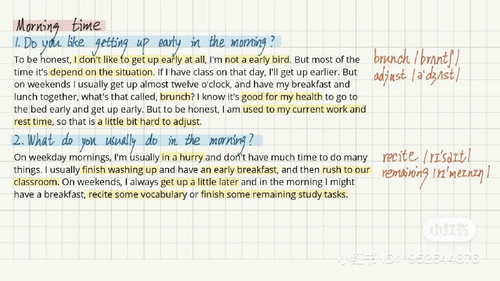 Morning time
1. Do you like getting up early in the morning?
To be honest, I don't like to get up early at all, I'm not a early bird. But most of the
time it's depend on the situation. If I have class on that day, I'll get up earlier. But
on weekends I usually get up almost twelve o'clock, and have my breakfast and
lunch together, what's that called, brunch? I know it's good for my health to go to
the bed early and get up early. But to be honest, I am used to my current work and
rest time, so that is a little bit hard to adjust.
brunch /brʌntʃ/
adjust /ə'dʒʌst/
2. What do you usually do in the morning?
On weekday mornings, I'm usually in a hurry and don't have much time to do many
things. I usually finish washing up and have an early breakfast, and then rush to our
classroom. On weekends, I always get up a little later and in the morning I might
have a breakfast, recite some vocabulary or finish some remaining study tasks.
recite /rɪ'saɪt/
remaining /rɪ'meɪnɪŋ/
小红书
小红书 ID: 952644876